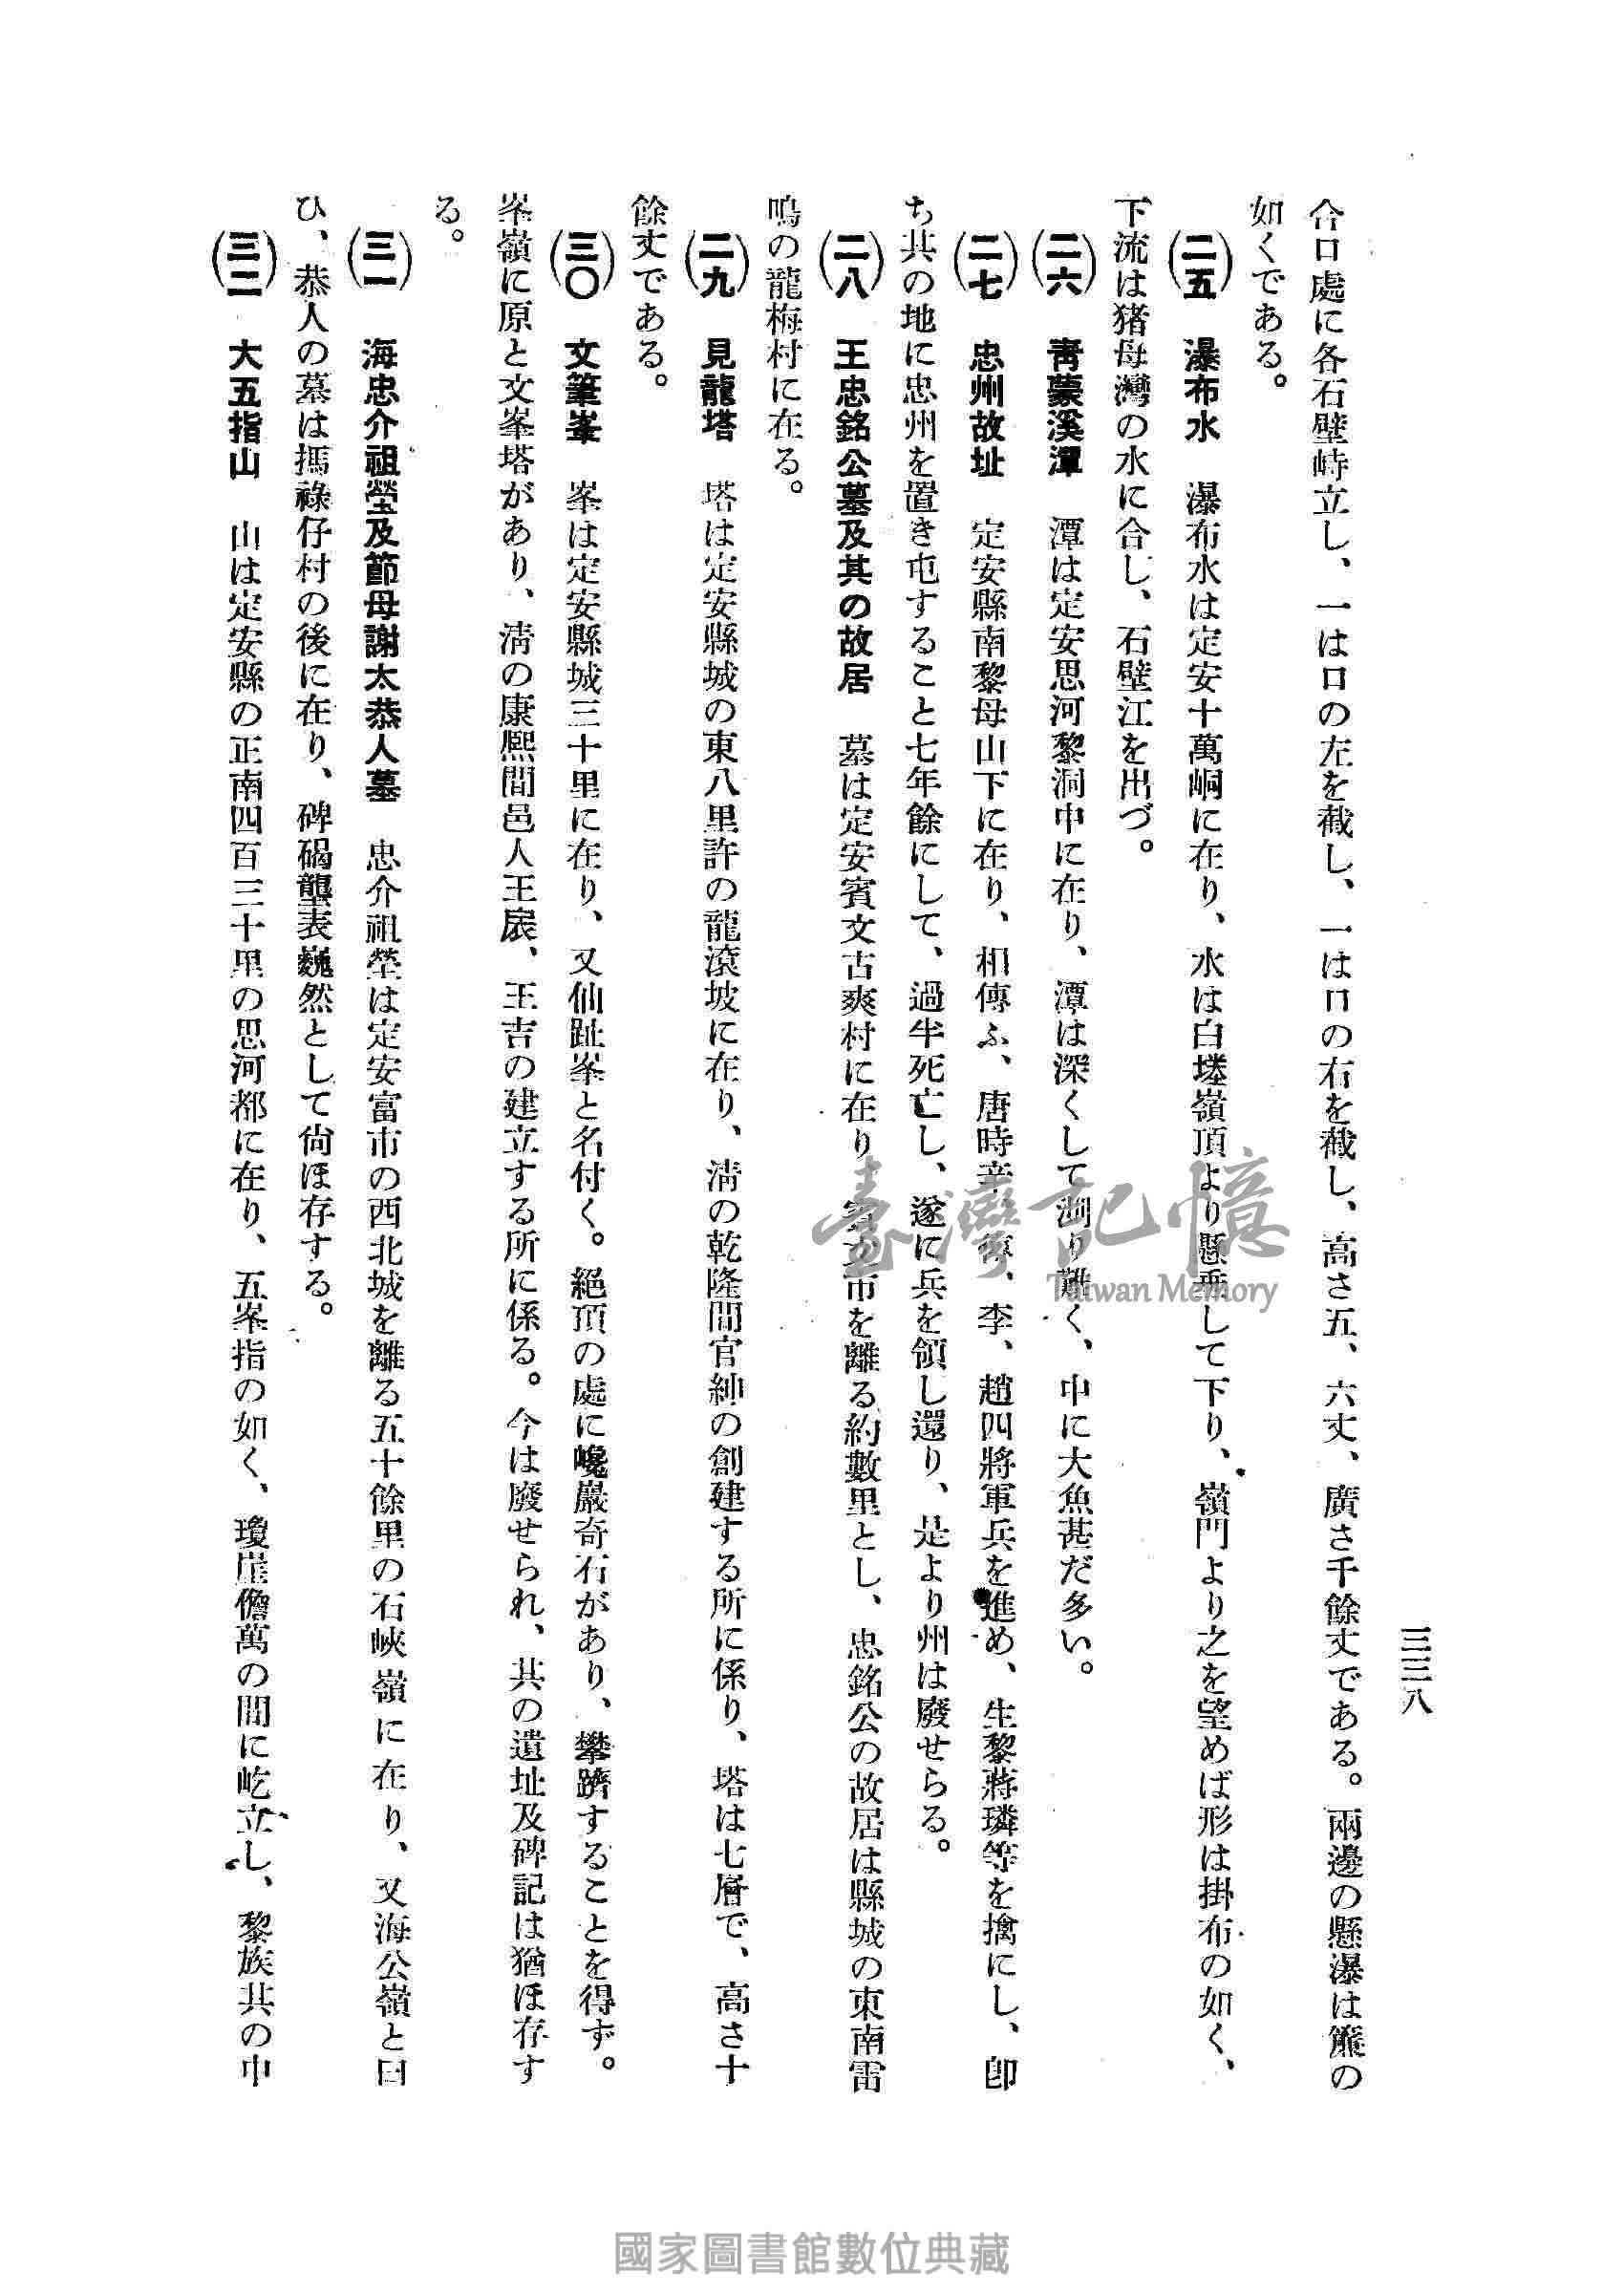 三三八
合口處に各石壁峙立し、一は口の左を截し、一は口の右を截し、高さ五、六丈、廣さ千餘丈である。兩邊の懸瀑は簾の
如くである。
(二五) 瀑布水 瀑布水は定安十萬峒に在り、水は白塿嶺頂より懸垂して下り、嶺門より之を望めば形は掛布の如く、
下流は猪母灣の水に合し、石壁江を出づ。
(二六) 靑蒙溪潭 潭は定安思河黎洞中に在り、潭は深くして測り難く、中に大魚甚だ多い。
(二七) 忠州故址 定安縣南黎母山下に在り、相傳ふ、唐時辛、李、趙四將軍兵を進め、生黎蔣璘等を擒にし、卽
ち其の地に忠州を置き屯すること七年餘にして、過半死亡し、遂に兵を領し還り、是より州は廢せらる。
(二八) 王忠銘公墓及其の故居 墓は定安賓文古爽村に在り 市を離る約數里とし、忠銘公の故居は縣城の東南雷
鳴の龍梅村に在る。
(二九) 見龍塔 塔は定安縣城の東八里許の龍滾坡に在り、淸の乾隆間官紳の創建する所に係り、塔は七層で、高さ十
餘丈である。
(三〇) 文筆峯 峯は定安縣城三十里に在り、又仙趾峯と名付く。絕頂の處に巉巖奇石があり、攀躋することを得ず。
峯嶺に原と文峯塔があり、淸の康熙間邑人王扆、王吉の建立する所に係る。今は廢せられ、其の遺址及碑記は猶ほ存す
る。
(三一) 海忠介祖塋及節母謝太恭人墓 忠介祖塋は定安富市の西北城を離る五十餘里の石峽嶺に在り、又海公嶺と曰
ひ、恭人の墓は搗祿仔村の後に在り、碑碣壟表巍然として尙ほ存する。
(三二) 大五指山 山は定安縣の正南四百三十里の思河都に在り、五峯指の如く、瓊崖儋萬の間に屹立し、黎族其の中
臺灣記憶
Taiwan Memory
國家圖書館數位典藏